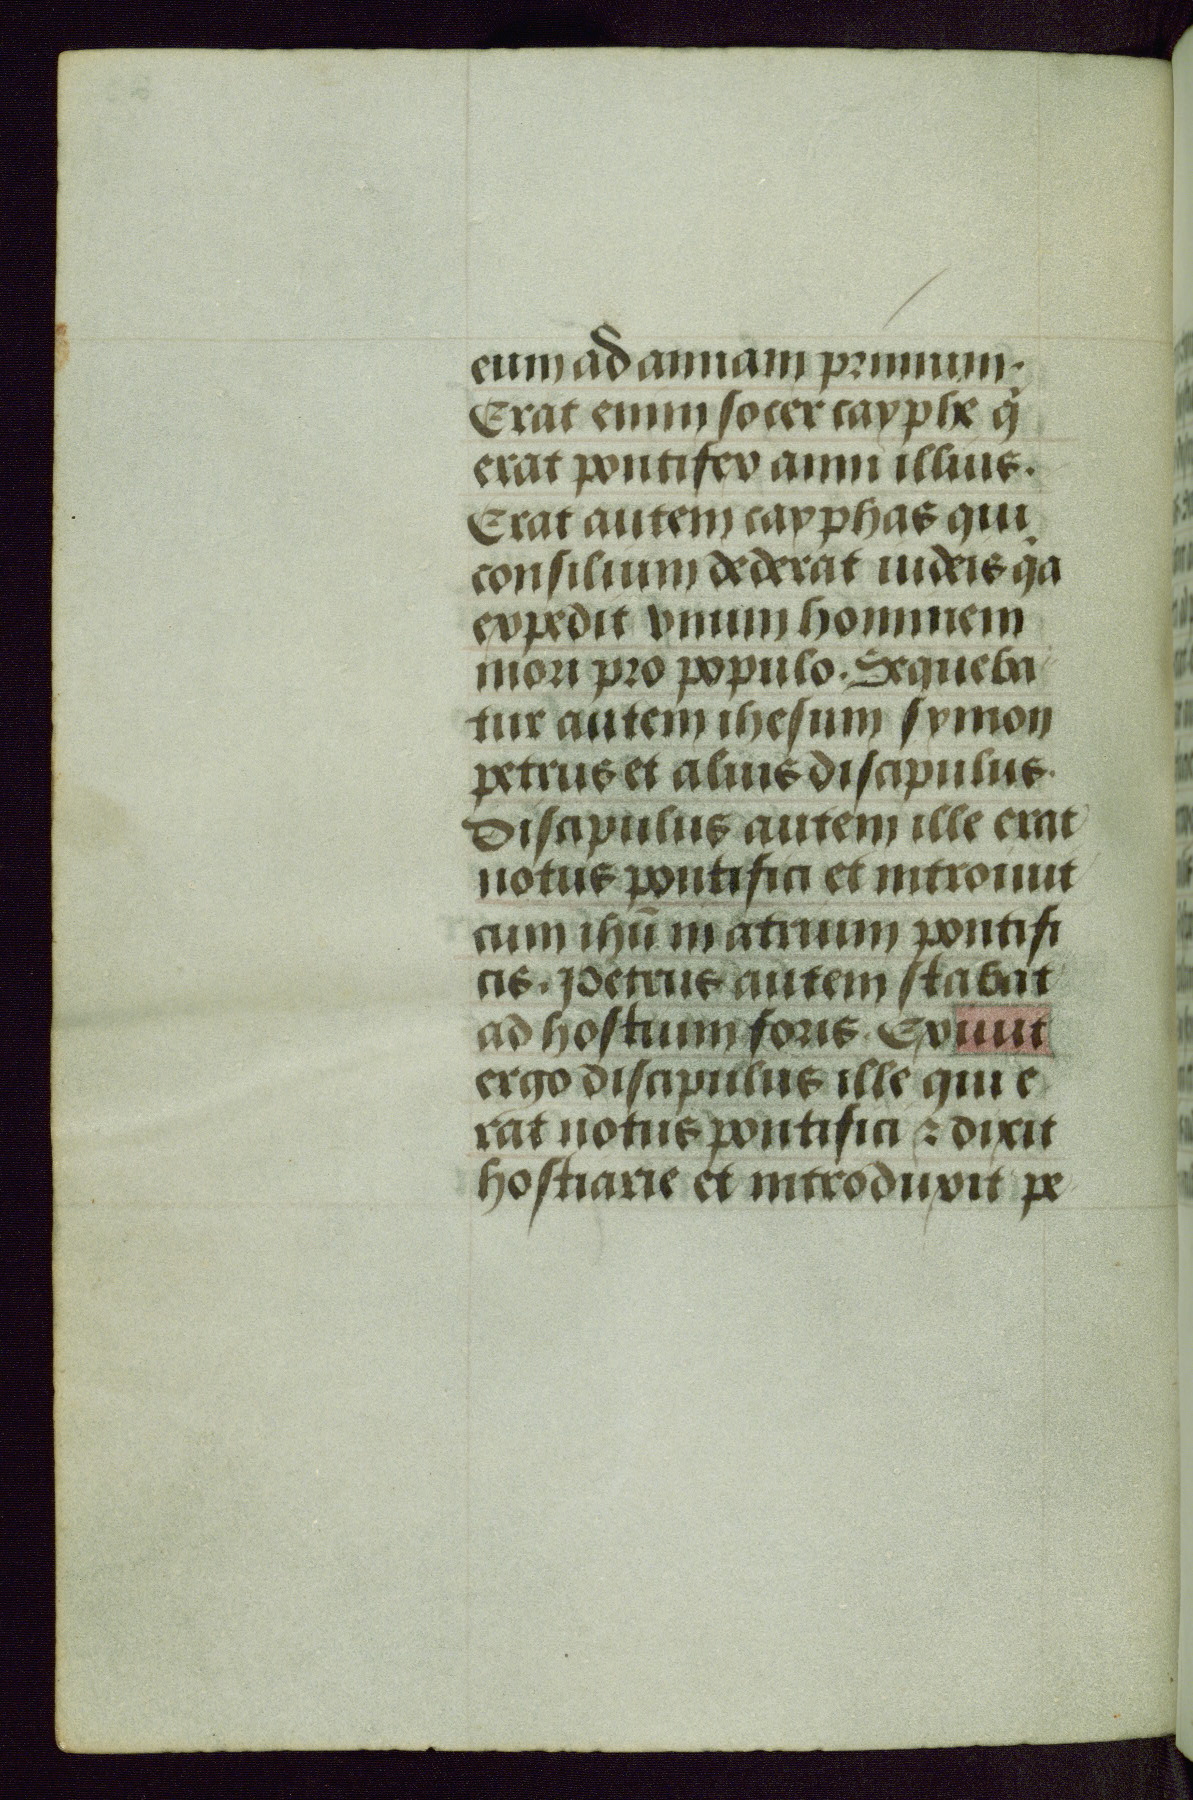 eum ad annam primum.
Erat enim socer cayphe q̇
erat pontifex anni illius.
Erat autem cayphas qui
consilium dederat iudeis q̇a
expedit vnum hominem
mori pro populo. Sequeba
tur autem ihesum symon
petrus et alius discipulus.
Discipulus autem ille erat
notus pontifici et introiuit
cum ihū in atrium pontifi
cis. Petrus autem stabat
ad hostium foris. Exiuit
ergo discipulus ille qui e
rat notus pontifici ⁊ dixit
hostiarie et introduxit pe